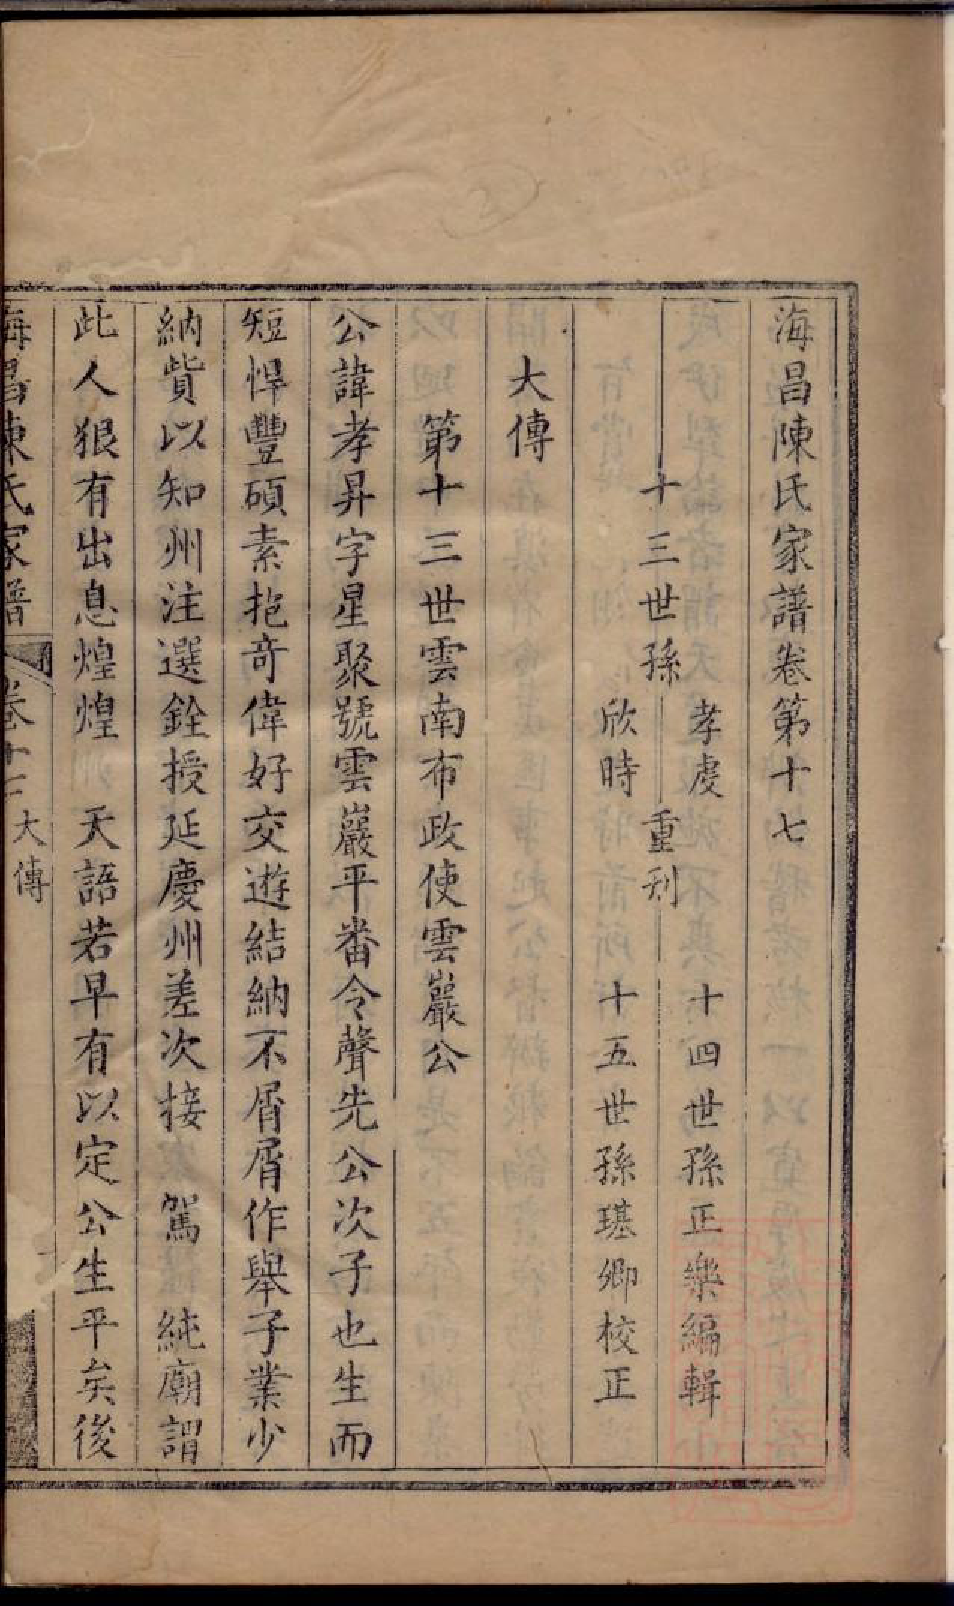 海昌陳氏家譜卷第十七
十三世孫 孝虔 欣時 重刋 十四世孫正樂編輯
十五世孫琪卿校正
大傳
第十三世雲南布政使雲巖公
公諱孝昇字星聚號雲巖平番令聲先公次子也生而
短悍豐碩素抱奇偉好交遊結納不屑屑作舉子業少
納貲以知州注選銓授延慶州差次接 駕 純廟謂
此人狠有出息煌煌 天語若早有以定公生平矣後
海昌陳氏家譜 卷十七 大傳